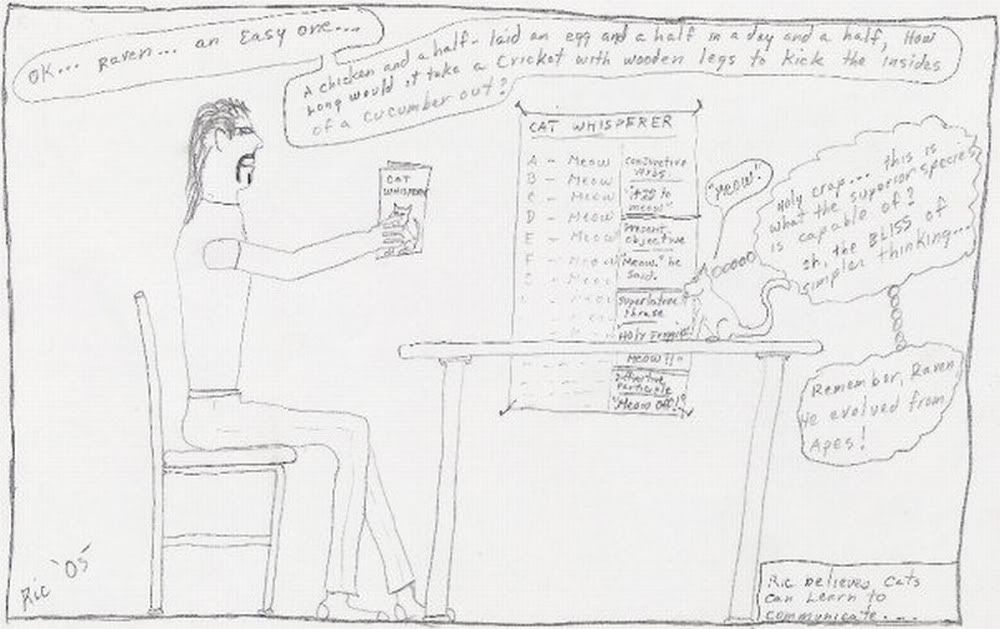 OK... Raven... an Easy one...
A chicken and a half- laid an egg and a half in a day and a half, How
Long would it take a Cricket with wooden legs to kick the insides
of a cucumber out?
CAT WHISPERER
CAT
WHISPERER
A - Meow
B - Meow
C - Meow
D - Meow
E - Meow
F - Meow
Conjunctive
Verbs
"to
meow"
Present
objective
"Meow." he
said.
Superlative
Phrase
Holy
Meow!!"
Participle
"Meow Off!"
"Meow!"
Holy crap... this is
what the superior species
is capable of?
oh, the BLISS of
simpler thinking...
Remember, Raven
He evolved from
Apes!
Ric '05
Ric believes Cats
Can Learn to
communicate....